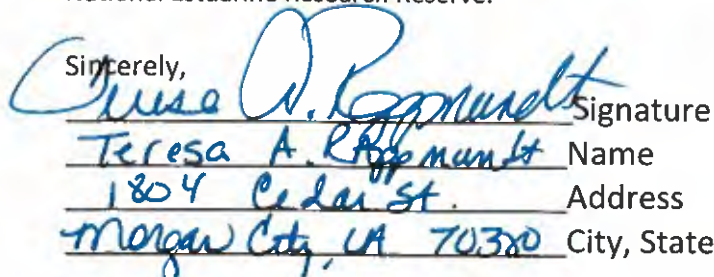 National Estuarine Research Reserve.
Sincerely,
Teresa A. Signature
Teresa A. Name
1804 Cedar St. Address
Morgan City, LA 70380 City, State